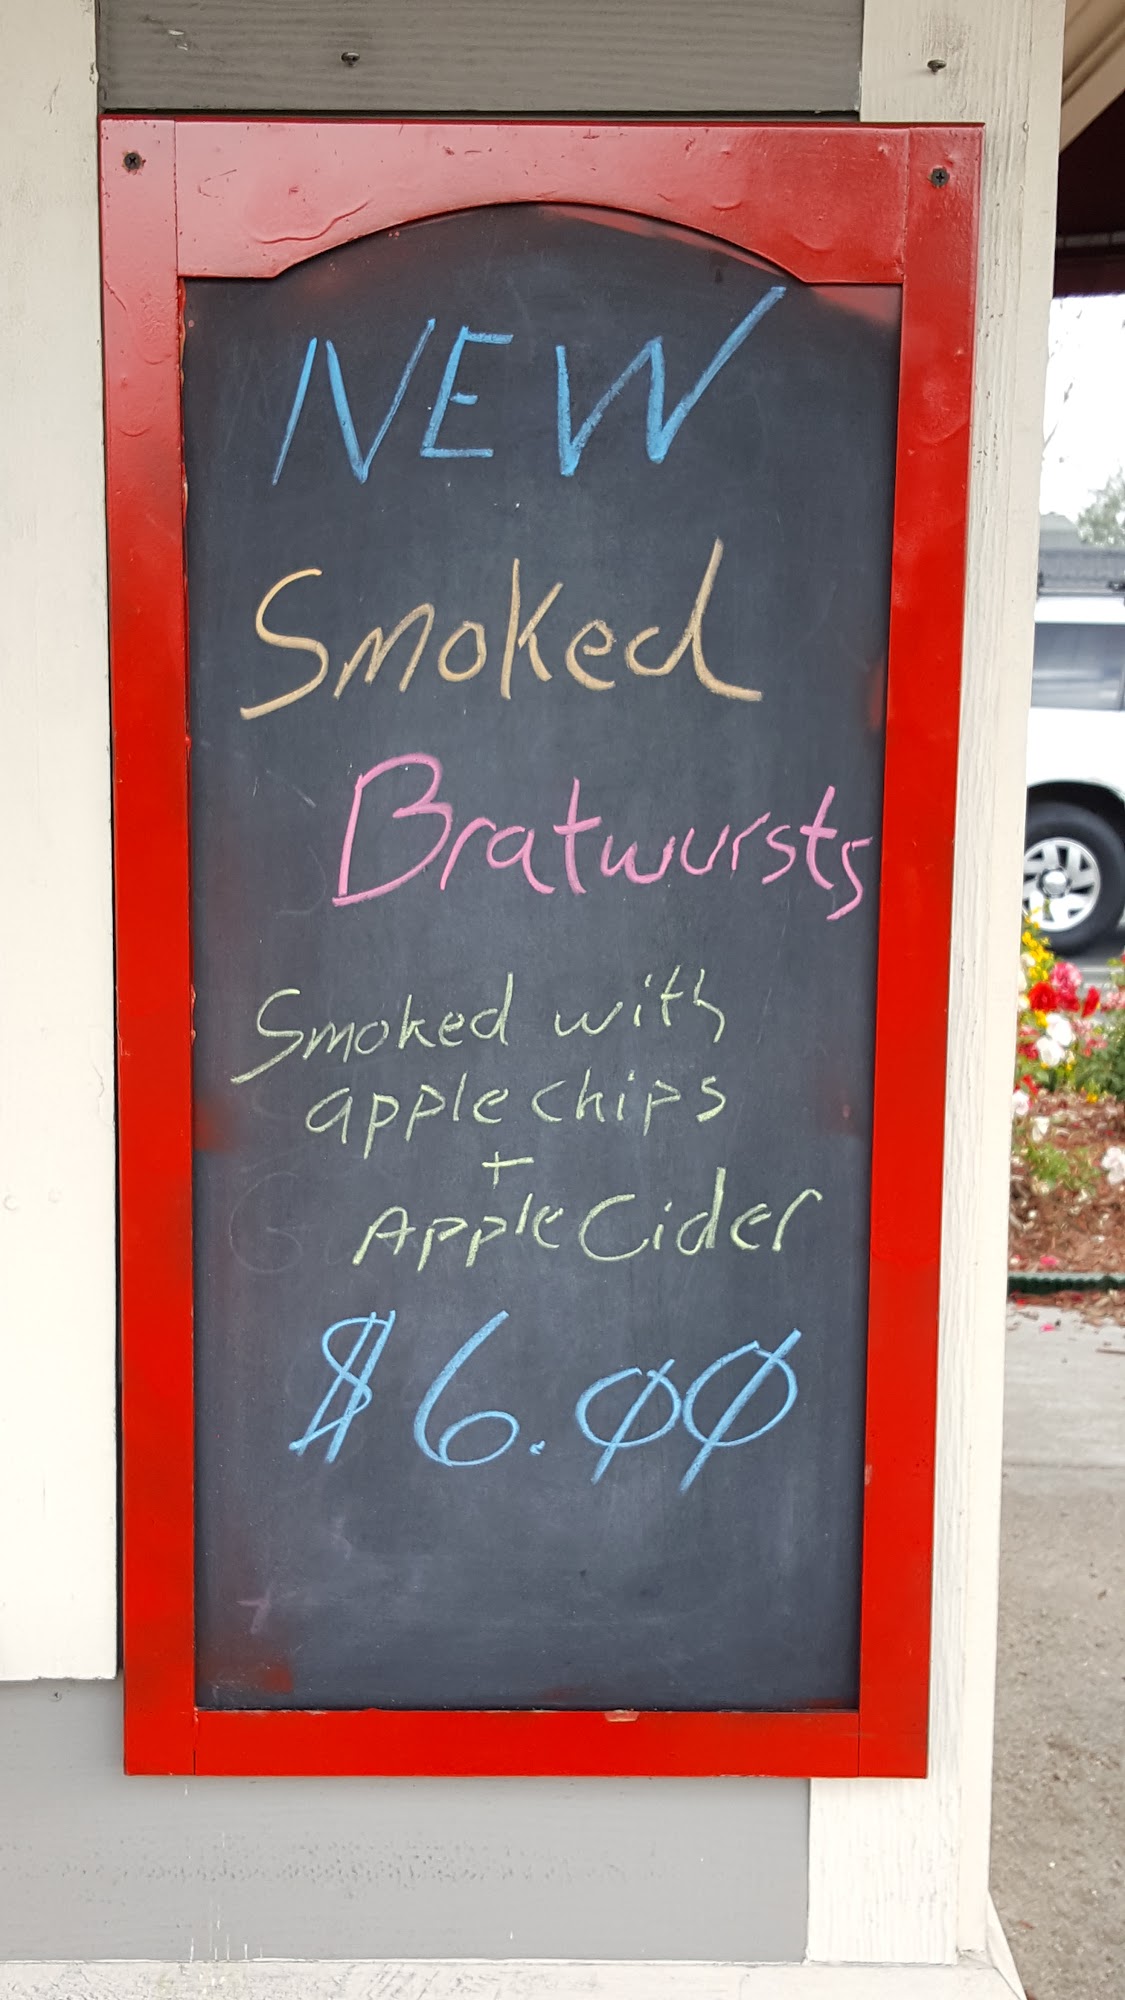 NEW
Smoked
Bratwursts
Smoked with
apple chips
+
Apple Cider
$6.00